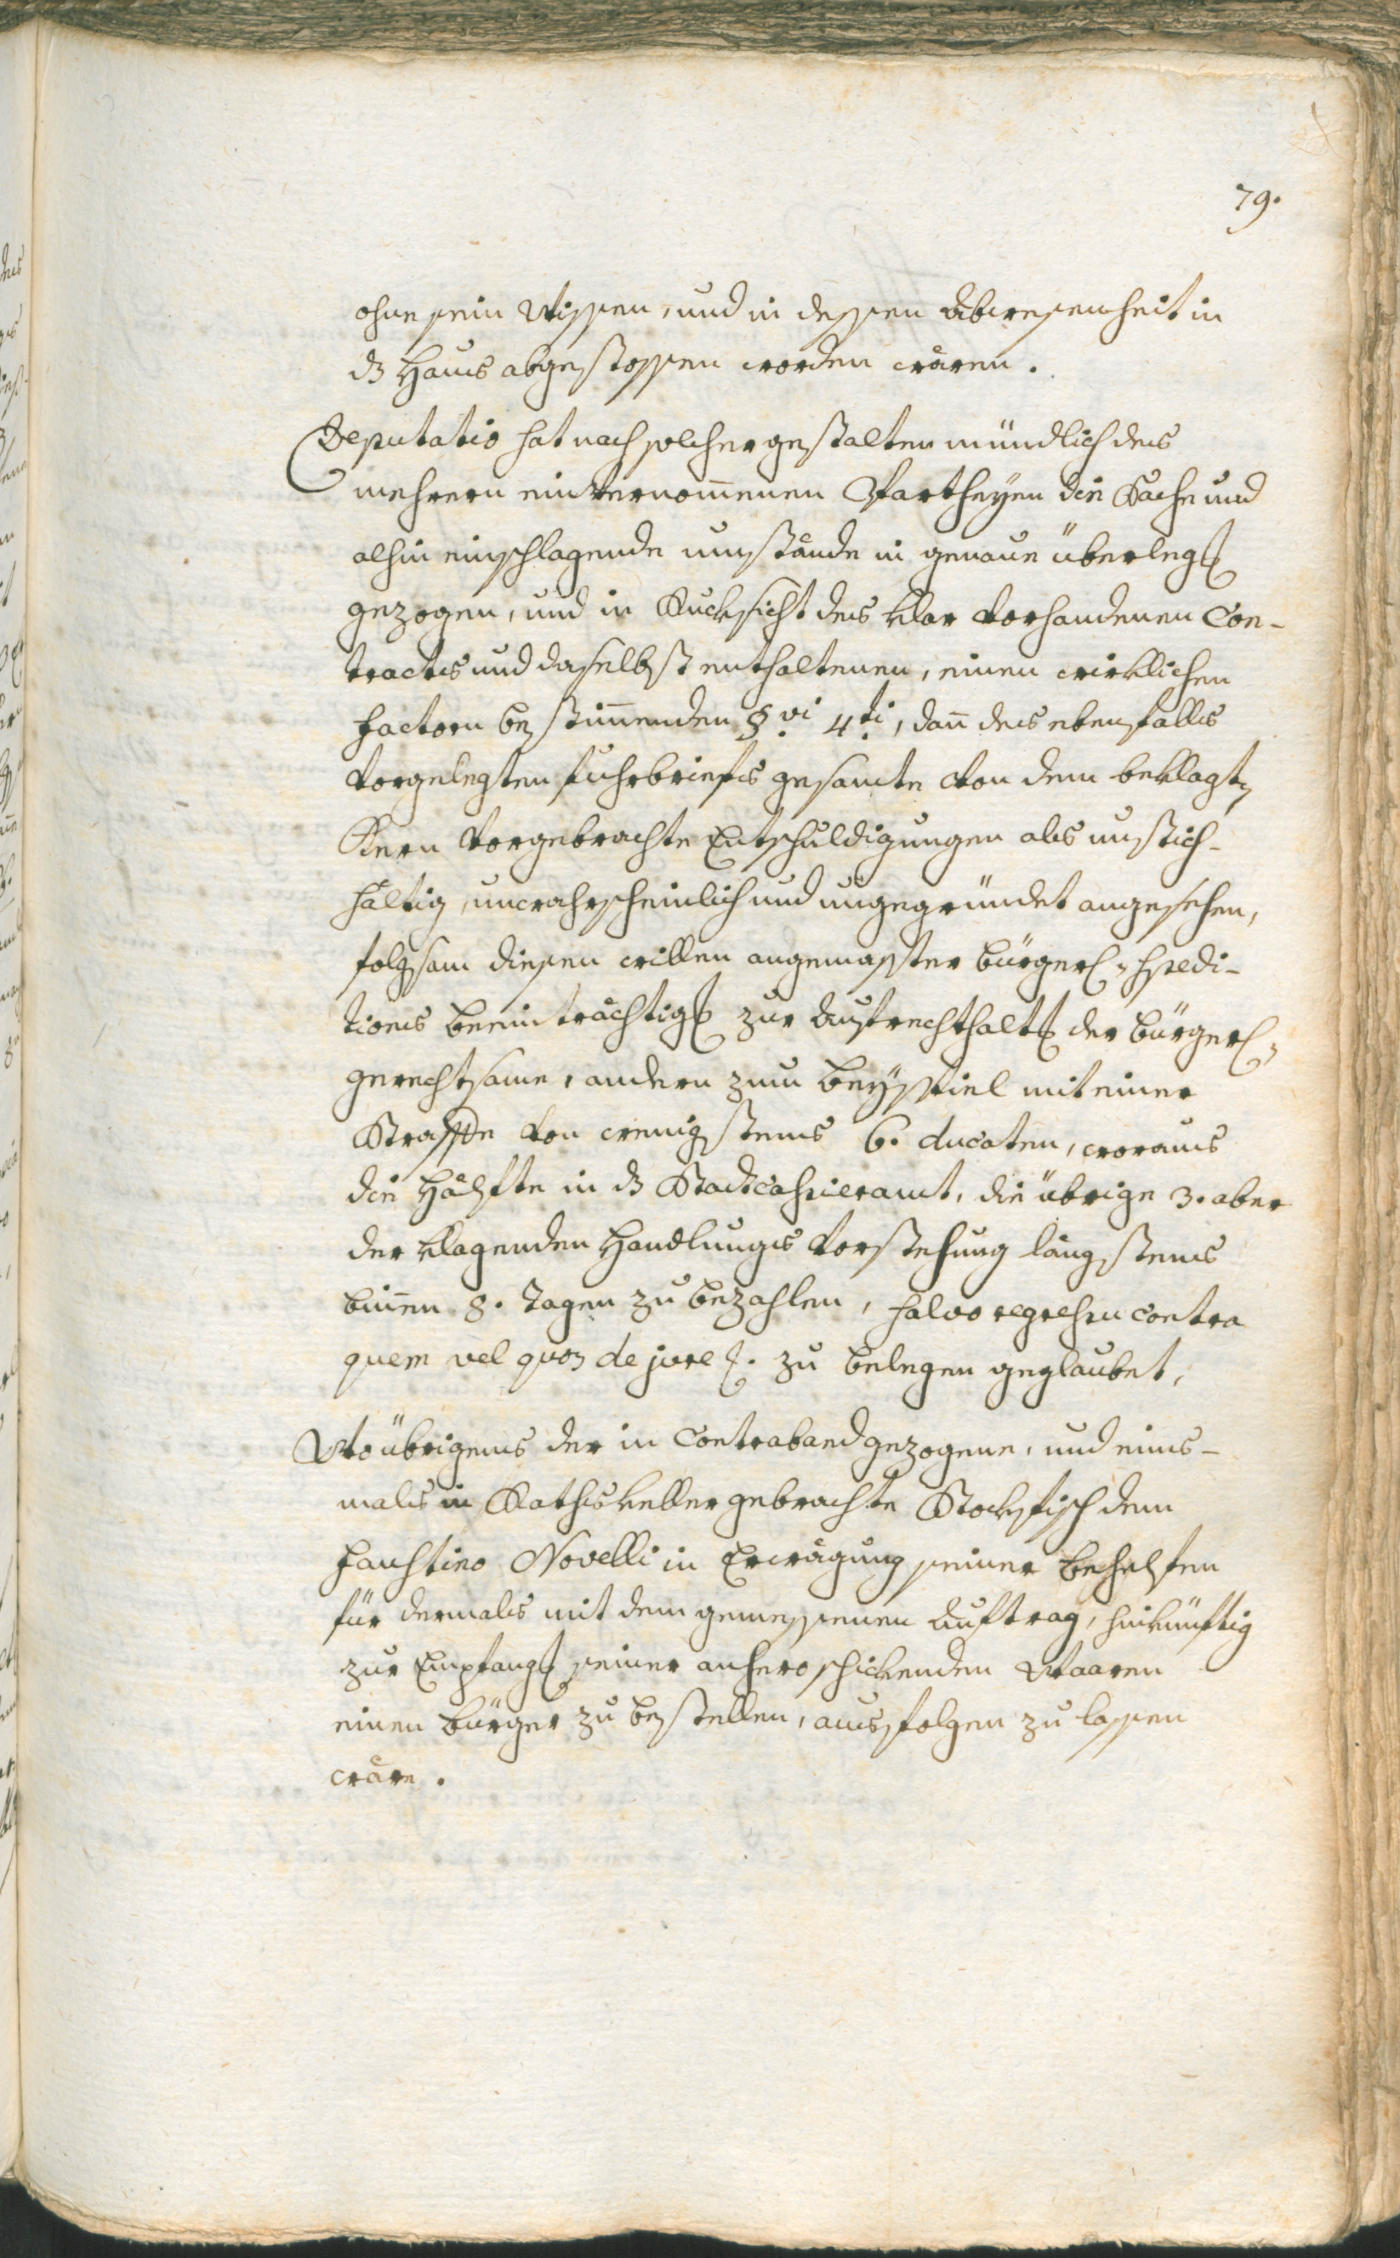 79.
ohne sein Wissen, und in dessen Abwesenheit in
dz Haus abgestossen worden wären.
Deputatio hat nach solchergestalten mündlich des
mehrern einvernom̄enen Partheyen die Sache und
alhin einschlagende umstände in genaue überlegg
gezogen, und in Rucksicht des klar vorhandenen Con-
tracts und daselbst enthaltenen, einen wirklichen
Factorn bestim̄enden §vi 4ti, dan̄ des ebenfalls
vorgelegten fuhrbriefs gesamte von dem beklagten
Kern vorgebrachte Entschuldigungen als unstich-
hältig, unwahrscheinlich und ungegründet angesehen,
folgsam diesen willen angemasster bürgerl. Spedi-
tions beeinträchtigg zur Aufrechthaltg der bürgerl.
gerechtsame, andern zum beyspiel mit einer
Straffe von wenigstens 6. ducaten, woraus
die Hälfte in dz Stadtcassieramt, die übrige 3. aber
der klagenden Handlungs Vorstehung längstens
bin̄en 8. Tagen zu bezahlen, salvo regressu contra
quem vel quos de jure etc. zu belegen geglaubet,
Wo übrigens der in Contraband gezogene, und eins-
mals in Rathskeller gebrachte Stockfisch dem
Faustino Novelli in Erwägung seiner behelfen
für dermals mit dem gemessenen Auftrag, hinkünftig
zur Empfangg seiner anhero schickenden Waaren
einen bürger zu bestellen, ausfolgen zu lassen
wäre.